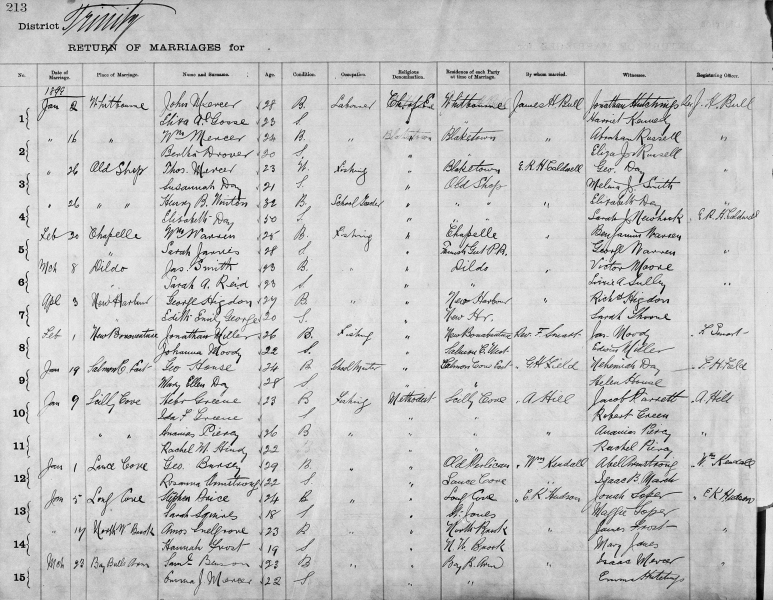 213
District Trinity
RETURN OF MARRIAGES for
No. Date of Marriage. Place of Marriage. Name and Surname. Age. Condition. Occupation. Religious Denomination. Residence of each Party at time of Marriage. By whom married. Witnesses. Registering Officer.
1899
1 Jan 2 Whitbourne John Mercer 28 B. Laborer Ch of E Whitbourne James H Bull Jonathan Hutchings Rev J. H. Bull
23 S. " Harriet
2 " 16 " Wm Mercer 24 B. " Blaketown " Abraham Russell "
Bertha Drover 20 S. " " Eliza J. Russell
3 " 26 Old Shop Thos Mercer 23 W. Fishing " Blaketown E. R. H Caldwell Geo. Day
Susannah Day 21 S. " Old Shop Smith
4 " 26 " " Henry B. 32 B. School " " " " Elizabeth Day
Elizabeth Day S. " " " Sarah J Newhook E R H Caldwell
5 Feb Chapelle Wm Warren 25 B. Fishing " Chapelle " Benjamin Warren
Sarah 28 S. " George Warren "
6 Mch 8 Dildo Jas. Smith 23 B. " " Dildo " Victor Moore
Sarah A. Reid 23 S. " " "
7 Apl 3 New Harbour George Higdon 29 B. " New Harbour " Richd Higdon
Edith Emily George 20 S. " New Hr. Sarah
8 Feb 1 New Bonaventure Jonathan Miller 26 B. Fishing " New Bonaventure Rev. F. Smart Jas. Moody F. Smart
Johanna Moody 22 S. " Miller
9 Jan 19 Salmon C. East Geo House 24 B. School Master " Salmon Cove East G H Field Nehemiah Day G H Field
Mary Ellen Day 28 S. " " Helen House
10 Jan 9 Scilly Cove Greene 23 B. Fishing Methodist Scilly Cove A Hill Jacob Parrott A Hill
Greene S. " " Robert Green
11 " " Ananias Piercy 26 B. " " " " Ananias Piercy "
Rachel M. 22 S. " " Rachel Piercy
12 Jan 1 Lance Cove Geo. Bursey 29 B. " " Old Perlican Wm Kendall Abel Armstrong Wm Kendall
Rosanna Armstrong 22 S. " Lance Cove Isaac B. March
13 Jan 5 Long Cove Stephen 24 B. " " Long Cove E. R Hudson Josiah Soper E R Hudson
Sarah Squires 18 S. " St Jones Soper
14 " 17 North W Brook Amos 23 B. " " " James Frost "
Hannah Frost 19 S. " N. W. Brook Mary Jones
15 Mch 23 Bay Bulls Arm Saml. Benson 23 B. " " Bay B. Arm " Isaac Mercer
Emma J Mercer 22 S. " " Emma Hutchings